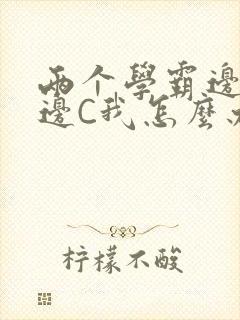 两个學霸邊
邊C我怎麼
柠檬不酸